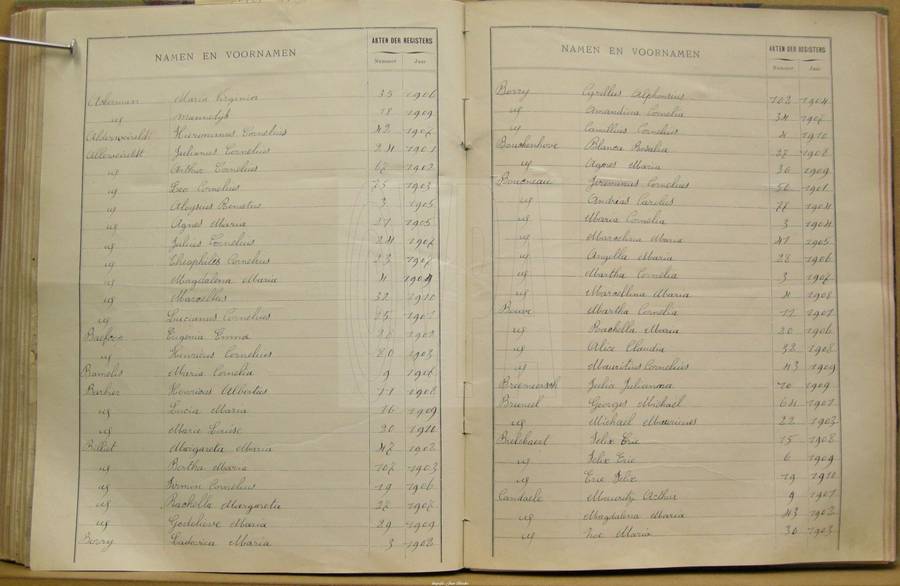 NAMEN EN VOORNAMEN AKTEN DER REGISTERS
Nummer Jaar
Ackerman Maria Virginia 35 1906
id Mannelyk 18 1909
Alderweireldt Hieronimus Cornelius 42 1907
Allerweireldt Julianus Cornelius 24 1901
id Arthur Cornelius 67 1902
id Leo Cornelius 75 1903
id Aloysius Renatus 3 1905
id Agnes Maria 37 1905
id Julius Cornelius 24 1907
id Theophilus Cornelius 23 1907
id Magdalena Maria 4 1909
id Marcellus 32 1910
id Lucianus Cornelius 25 1901
Eugenia Emma 1902
id Henricus Cornelius 80 1903
Bamelis Maria Cornelia 9 1906
Barbier Henricus Albertus 11 1908
id Lucia Maria 16 1909
id Marie Louise 20 1910
Billiet Margareta Maria 47 1902
id Bertha Maria 107 1903
id Firmin Cornelius 19 1906
id Rachella Margareta 27 1907
id Godelieve Maria 29 1909
Borry Ludovica Maria 3 1902
NAMEN EN VOORNAMEN AKTEN DER REGISTERS
Nummer Jaar
Borry Cyrillus Alphonsius 102 1904
id Amandina Cornelia 34 1907
id Camillus Cornelius 4 1910
Bouckenhove Blanca Rosalia 27 1908
id Agnes Maria 36 1909
Boucneau Jeremias Cornelius 50 1901
id Andreas Carolus 77 1904
id Maria Cornelia 3 1904
id Maria 41 1905
id Angella Maria 28 1906
id Martha Cornelia 3 1907
id Marcellina Maria 4 1908
Bouve Martha Cornelia 11 1901
id Rachella Maria 20 1906
id Alice Claudia 32 1908
id Mauritius Cornelius 43 1909
Breemersch Julia Julianna 10 1909
Bruneel Georges Michael 64 1901
id Michael 22 1903
Bulckaert Felix Eric 15 1908
id Felix Eric 6 1909
id Eric Felix 19 1910
Candaele Maurits Arthur 9 1901
id Magdalena Maria 43 1902
id Noe Maria 36 1903